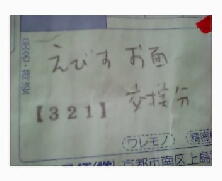 えびす お面
【321】 交換分
ワレモノ
京都市南区上鳥